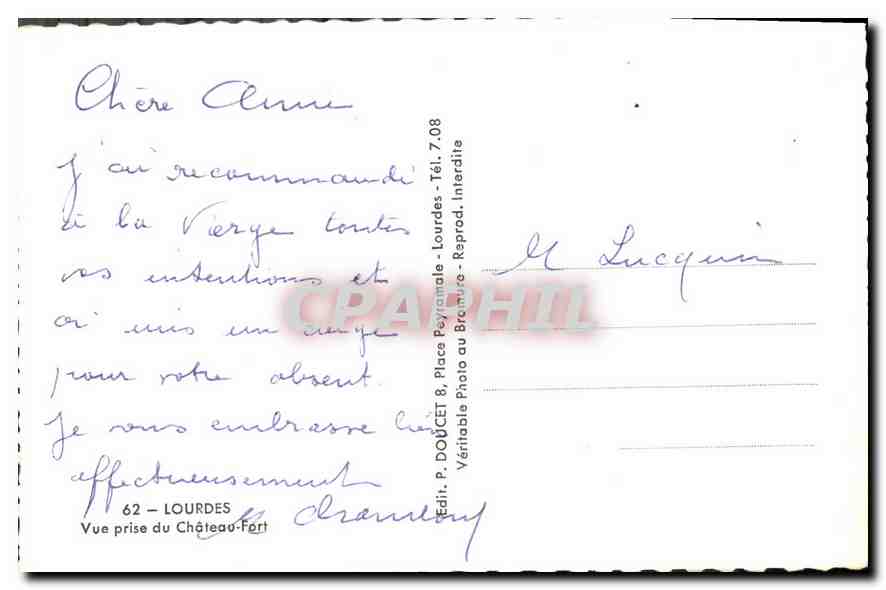 Chère Annie
j'ai recommandé
à la Vierge toutes
vos intentions et
ai mis un cierge
pour votre absent.
Je vous embrasse très
affectueusement
M
62 — LOURDES
Vue prise du Château-Fort
Edit. P. DOUCET 8, Place Peyramale - Lourdes - Tél. 7.08
Véritable Photo au Bromure - Reprod. Interdite
M Lucquin
CPAPHIL